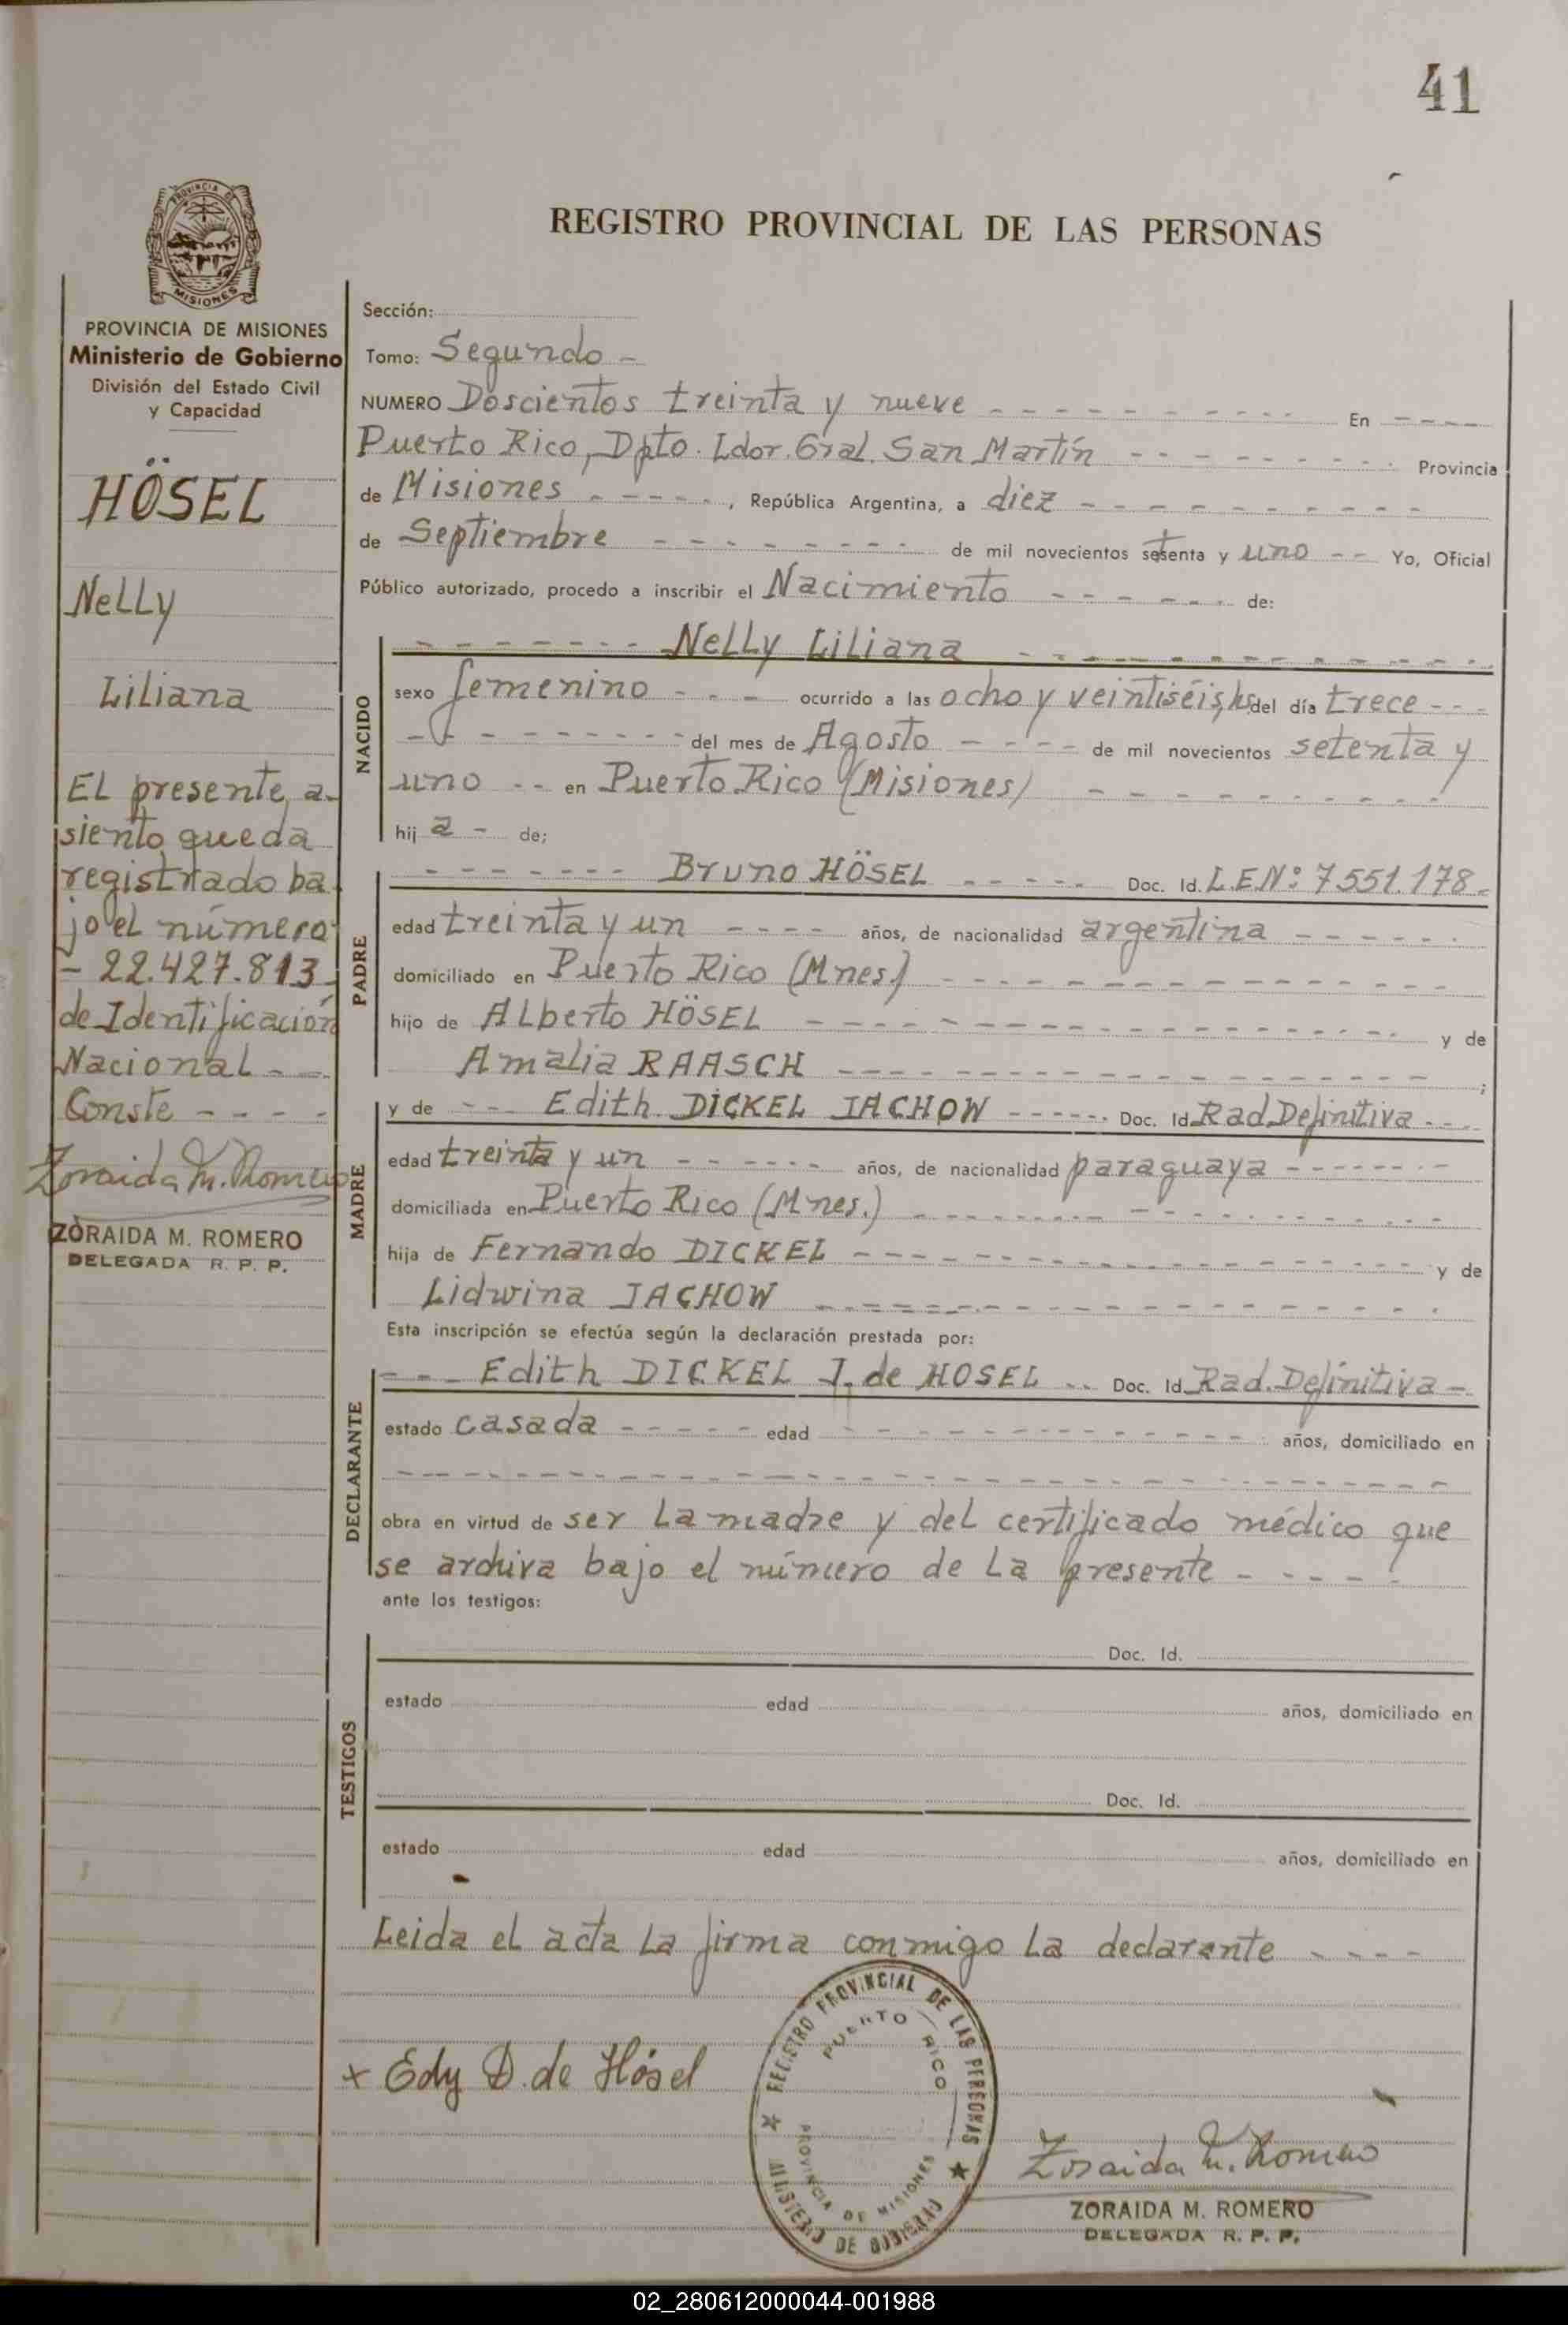 41
PROVINCIA DE
MISIONES
REGISTRO PROVINCIAL DE LAS PERSONAS
PROVINCIA DE MISIONES
Ministerio de Gobierno
División del Estado Civil
y Capacidad
HÖSEL
Nelly
Liliana
El presente a-
siento queda
registrado ba
jo el número
- 22.427.813 -
de Identificación
Nacional - -
Conste - - - -
Zoraida M. Romero
ZORAIDA M. ROMERO
DELEGADA R. P. P.
Sección:
Tomo: Segundo -
NUMERO Doscientos treinta y nueve - - - - - - - - - - En - - - -
Puerto Rico, Dpto. Ldor. Gral. San Martín - - - - - - - - Provincia
de Misiones - - - - - -, República Argentina, a diez - - - - - - - - - -
de Septiembre - - - - - - - - de mil novecientos setenta y uno - - Yo, Oficial
Público autorizado, procedo a inscribir el Nacimiento - - - - - - de:
NACIDO
- - - - - - - Nelly Liliana - - - - - - - - - - - -
sexo femenino - - - - ocurrido a las ocho y veintiséis, hs del día trece - - -
- - - - - - - - - del mes de Agosto - - - - - de mil novecientos setenta y
uno - - en Puerto Rico (Misiones) - - - - - - - - - -
hij a - de;
PADRE
- - - - - - - Bruno HÖSEL - - - - - Doc. Id. L.E.Nº: 7551.178 -
edad treinta y un - - - - años, de nacionalidad argentina - - - - - -
domiciliado en Puerto Rico (Mnes.) - - - - - - - - - - - - - -
hijo de Alberto HÖSEL - - - - - - - - - - - - - - - y de
Amalia RAASCH - - - - - - - - - - - - - - - - ;
MADRE
y de - - - Edith DICKEL JACHOW - - - - - - Doc. Id. Rad. Definitiva - - -
edad treinta y un - - - - - - - años, de nacionalidad paraguaya - - - - - - -
domiciliada en Puerto Rico (Mnes.) - - - - - - - - - - - - - -
hija de Fernando DICKEL - - - - - - - - - - - - - - y de
Lidwina JACHOW - - - - - - - - - - - - - - - -
Esta inscripción se efectúa según la declaración prestada por:
DECLARANTE
- - - Edith DICKEL J. de HOSEL - - Doc. Id. Rad. Definitiva -
estado casada - - - - - edad - - - - - - - - - - - - años, domiciliado en
- - - - - - - - - - - - - - - - - - - - - - - - - - - -
obra en virtud de ser la madre y del certificado médico que
se archiva bajo el número de la presente - - - - -
ante los testigos:
TESTIGOS
Doc. Id.
estado edad años, domiciliado en
Doc. Id.
estado edad años, domiciliado en
Leida el acta la firma conmigo la declarante - - - -
x Edy D. de Hösel
REGISTRO PROVINCIAL DE LAS PERSONAS
PUERTO RICO
PROVINCIA DE MISIONES
MINISTERIO DE GOBIERNO
Zoraida M. Romero
ZORAIDA M. ROMERO
DELEGADA R. P. P.
02_280612000044-001988